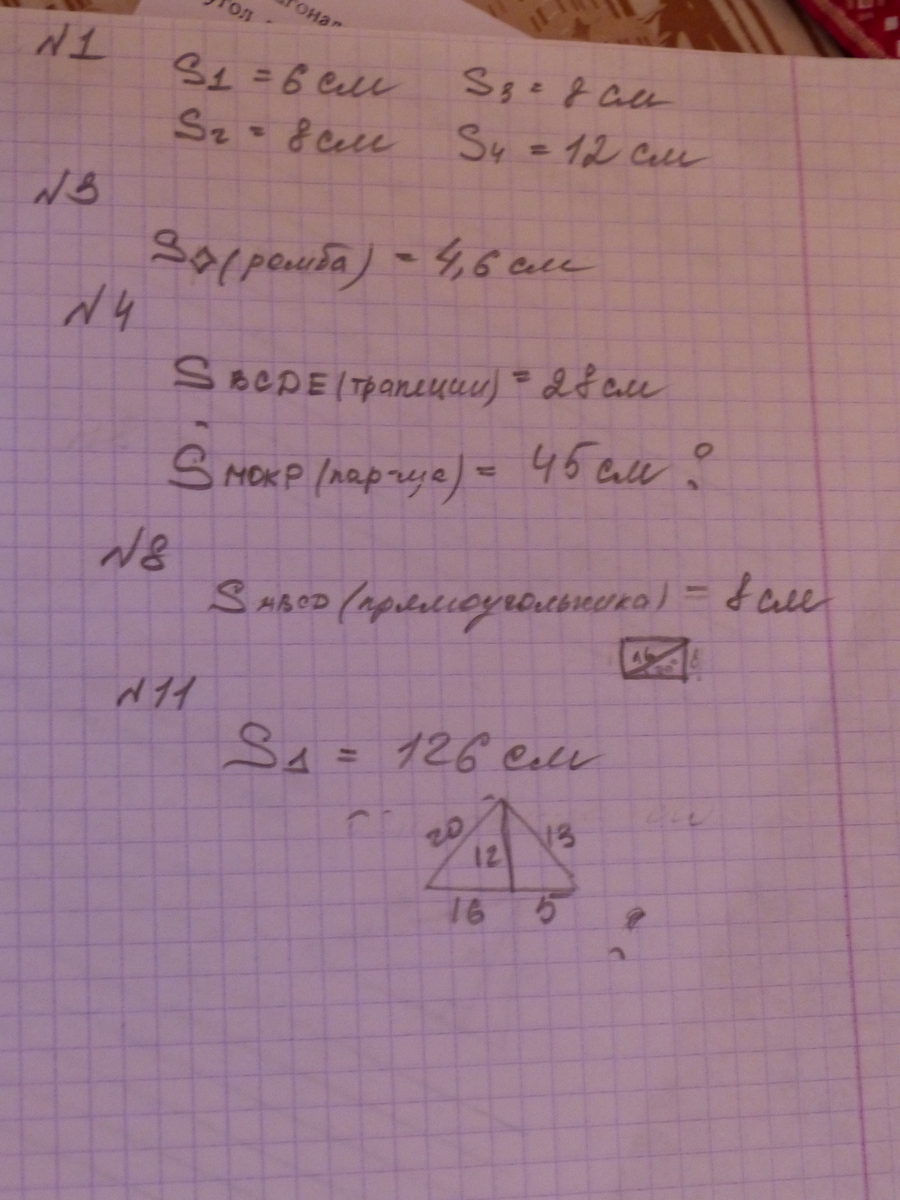 угол
гонал
N1
S1 = 6 см S3 = 8 см
S2 = 8 см S4 = 12 см
N3
S◇(ромба) = 4,6 см
N4
S BCDE (трапеции) = 28 см
S МОКР (пар-ма) = 45 см ?
N8
S ABCD (прямоугольника) = 8 см
16 8
N11
S1 = 126 см
20 12 13
16 5
?